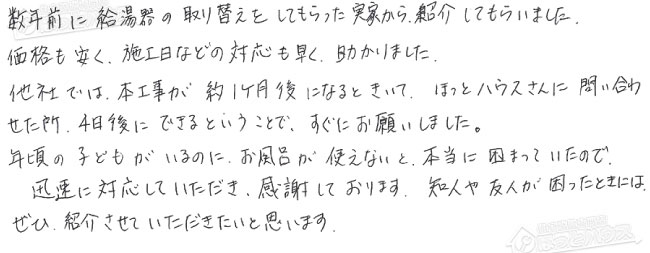 数年前に給湯器の取り替えをしてもらった実家から、紹介してもらいました。
価格も安く、施工日などの対応も早く、助かりました。
他社では、本工事が約1ヶ月後になるときいて、ほっとハウスさんに問い合わ
せた所、4日後にできるということで、すぐにお願いしました。
年頃の子どもがいるのに、お風呂が使えないと、本当に困まっていたので、
迅速に対応していただき、感謝しております。知人や友人が困ったときには、
ぜひ、紹介させていただきたいと思います。
ほっとハウス